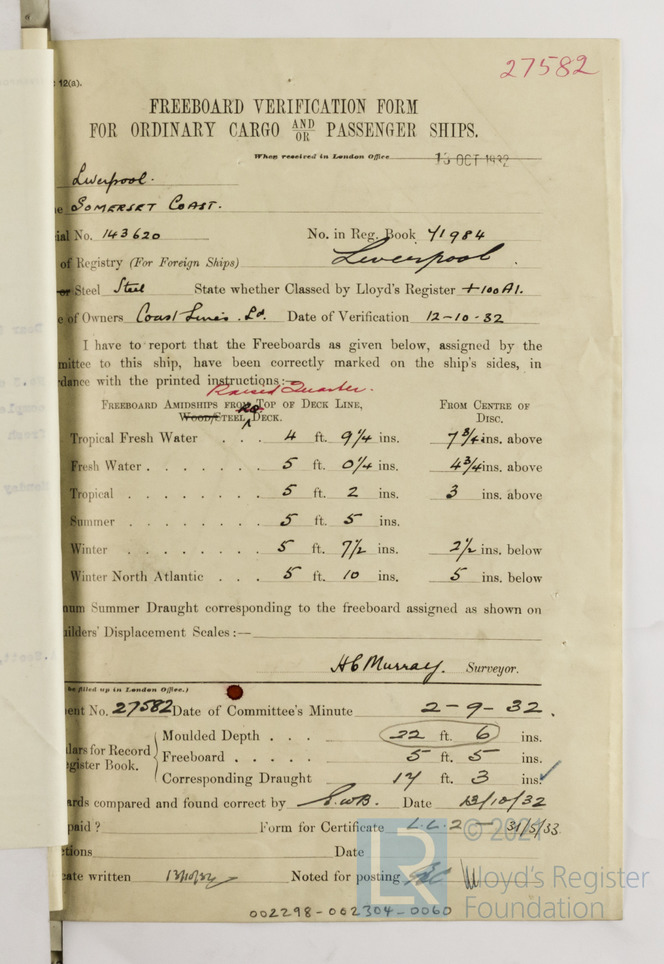 27582
12(a).
FREEBOARD VERIFICATION FORM
FOR ORDINARY CARGO AND/OR PASSENGER SHIPS.
When received in London Office 13 OCT 1932
Liverpool.
SOMERSET COAST.
ial No. 143620 No. in Reg. Book 71984
of Registry (For Foreign Ships) Liverpool.
or Steel Steel State whether Classed by Lloyd's Register +100A1.
e of Owners Coast Lines. Ld. Date of Verification 12-10-32
I have to report that the Freeboards as given below, assigned by the
mittee to this ship, have been correctly marked on the ship's sides, in
dance with the printed instructions:—
Raised Quarter.
FREEBOARD AMIDSHIPS FROM TOP OF DECK LINE, FROM CENTRE OF
WOOD/STEEL DECK. DISC.
Tropical Fresh Water . . . 4 ft. 9 1/4 ins. 7 3/4 ins. above
Fresh Water . . . . . . . 5 ft. 0 1/4 ins. 4 3/4 ins. above
Tropical . . . . . . . . 5 ft. 2 ins. 3 ins. above
Summer . . . . . . . . 5 ft. 5 ins.
Winter . . . . . . . . 5 ft. 7 1/2 ins. 2 1/2 ins. below
Winter North Atlantic . . . 5 ft. 10 ins. 5 ins. below
num Summer Draught corresponding to the freeboard assigned as shown on
uilders' Displacement Scales :—
H C Murray. Surveyor.
be filled up in London Office.)
ent No. 27582 Date of Committee's Minute 2-9-32.
Moulded Depth . . . 22 ft. 6 ins.
lars for Record
Freeboard . . . . . 5 ft. 5 ins.
egister Book.
Corresponding Draught 17 ft. 3 ins.
ards compared and found correct by Date 13/10/32
paid ? Form for Certificate L.L.2 — 31/5/33.
ctions Date
cate written 13/10/32 Noted for posting
LR © 2021
Lloyd's Register
Foundation
002298-002304-0060